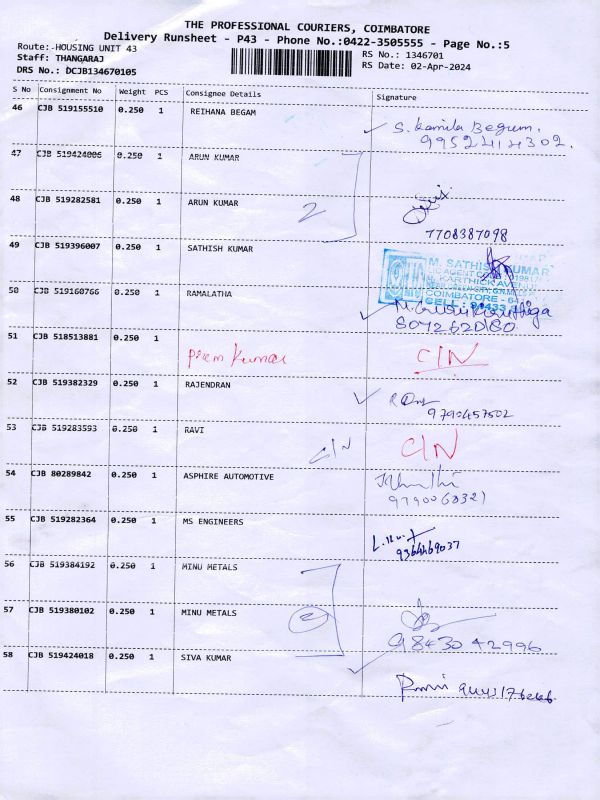 THE PROFESSIONAL COURIERS, COIMBATORE
Delivery Runsheet - P43 - Phone No.:0422-3505555 - Page No.:5
Route:-HOUSING UNIT 43
RS No.: 1346701
Staff: THANGARAJ
RS Date: 02-Apr-2024
DRS No.: DCJB134670105
S No Consignment No Weight PCS Consignee Details Signature
46 CJB 519155510 0.250 1 REIHANA BEGAM
S. Kamila Begum.
9952414302.
47 CJB 519424006 0.250 1 ARUN KUMAR
48 CJB 519282581 0.250 1 ARUN KUMAR
2
7708387098
49 CJB 519396007 0.250 1 SATHISH KUMAR
M. SATHISH KUMAR
COIMBATORE - 64
CELL :
50 CJB 519160766 0.250 1 RAMALATHA
51 CJB 518513881 0.250 1
Prem Kumar C/N
52 CJB 519382329 0.250 1 RAJENDRAN
9790457502
53 CJB 519283593 0.250 1 RAVI
C/N C/N
54 CJB 80289842 0.250 1 ASPHIRE AUTOMOTIVE
9790068321
55 CJB 519282364 0.250 1 MS ENGINEERS
9364469037
56 CJB 519384192 0.250 1 MINU METALS
57 CJB 519380102 0.250 1 MINU METALS
2
9843042996
58 CJB 519424018 0.250 1 SIVA KUMAR